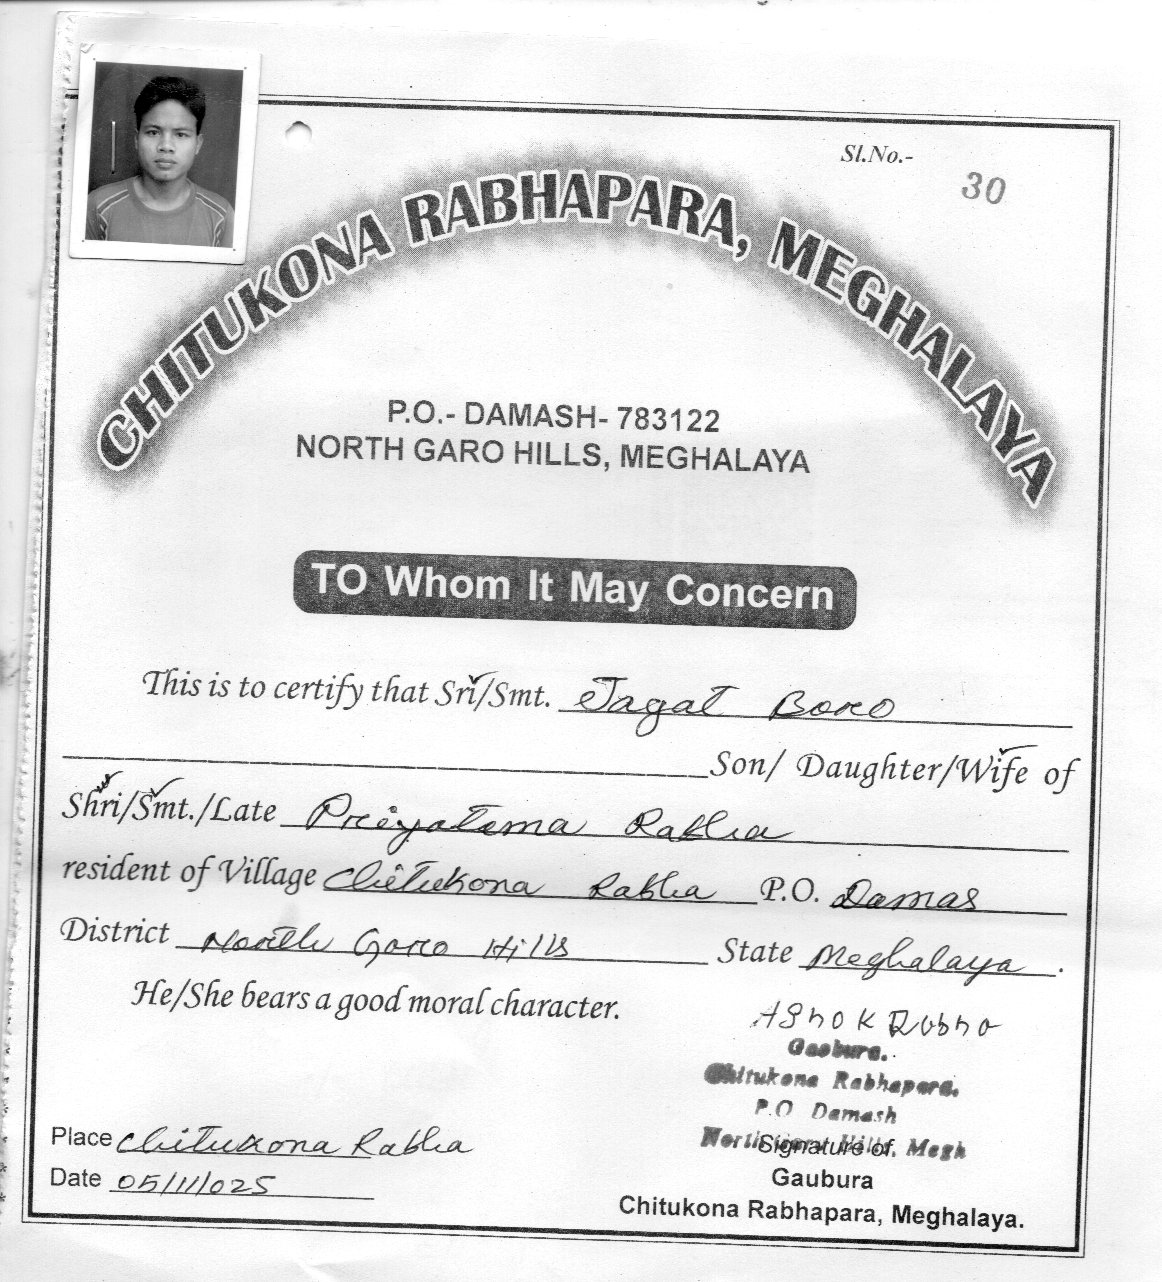 Sl.No.- 30
CHITUKONA RABHAPARA, MEGHALAYA
P.O.- DAMASH- 783122
NORTH GARO HILLS, MEGHALAYA
TO Whom It May Concern
This is to certify that Sri/Smt. Jagat Boro
Son/ Daughter/Wife of
Shri/Smt./Late Priyatama Rabha
resident of Village Chitukona Rabha P.O. Damas
District North Garo Hills State Meghalaya.
He/She bears a good moral character.
Ashok Rabha
Gaobura.
Chitukona Rabhapara.
P.O Damash
North Garo Hills, Megh
Place Chitukona Rabha
Signature of
Date 05/11/025
Gaubura
Chitukona Rabhapara, Meghalaya.